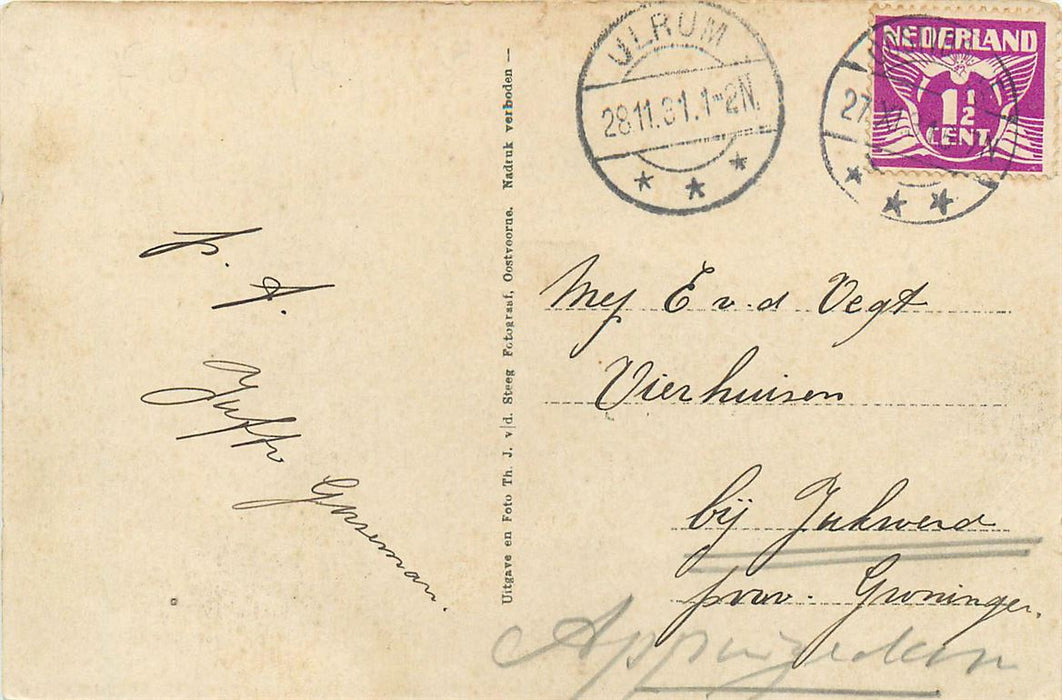 ULRUM
28.11.31.1-2N.
NEDERLAND
1 1/2
CENT
27
p. A.
Juffr
Uitgave en Foto Th. J. v/d. Steeg Fotograaf, Oostvoorne. Nadruk verboden —
Mej E v. d Vegt
Vierhuisen
bij Jukwerd
prov. Groningen.
Appingedam